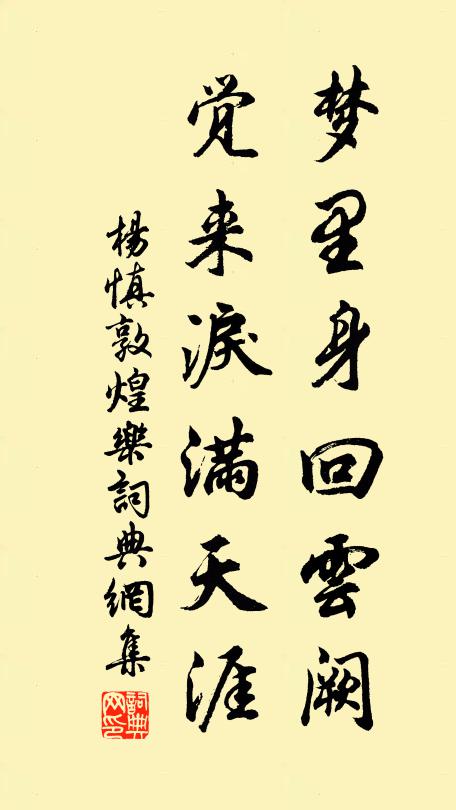 梦里身回雲阙
觉来淚满天涯
楊慎敦煌樂詞典網集
詞典網印